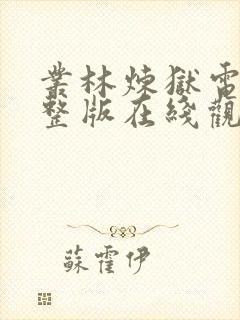 叢林煉獄電
整版在綫觀
蘇霍伊